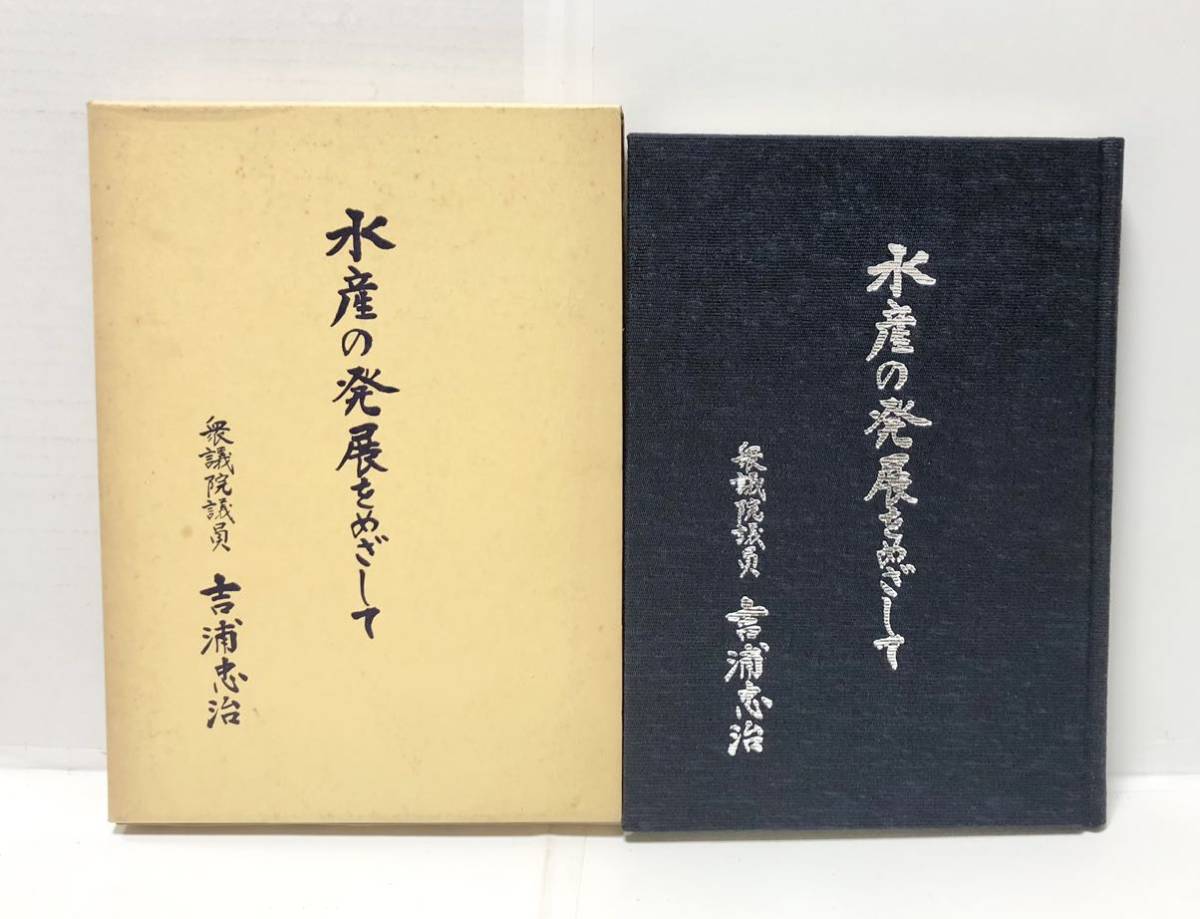 水産の発展をめざして
衆議院議員 吉浦忠治
水産の発展をめざして
衆議院議員 吉浦忠治